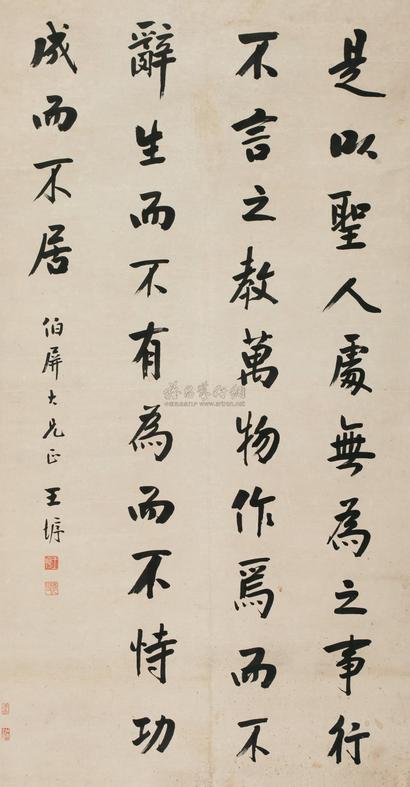 是以聖人處無為之事行
不言之教萬物作焉而不
辭生而不有為而不恃功
成而不居
伯屏大兄正 王垿
www.artron.net